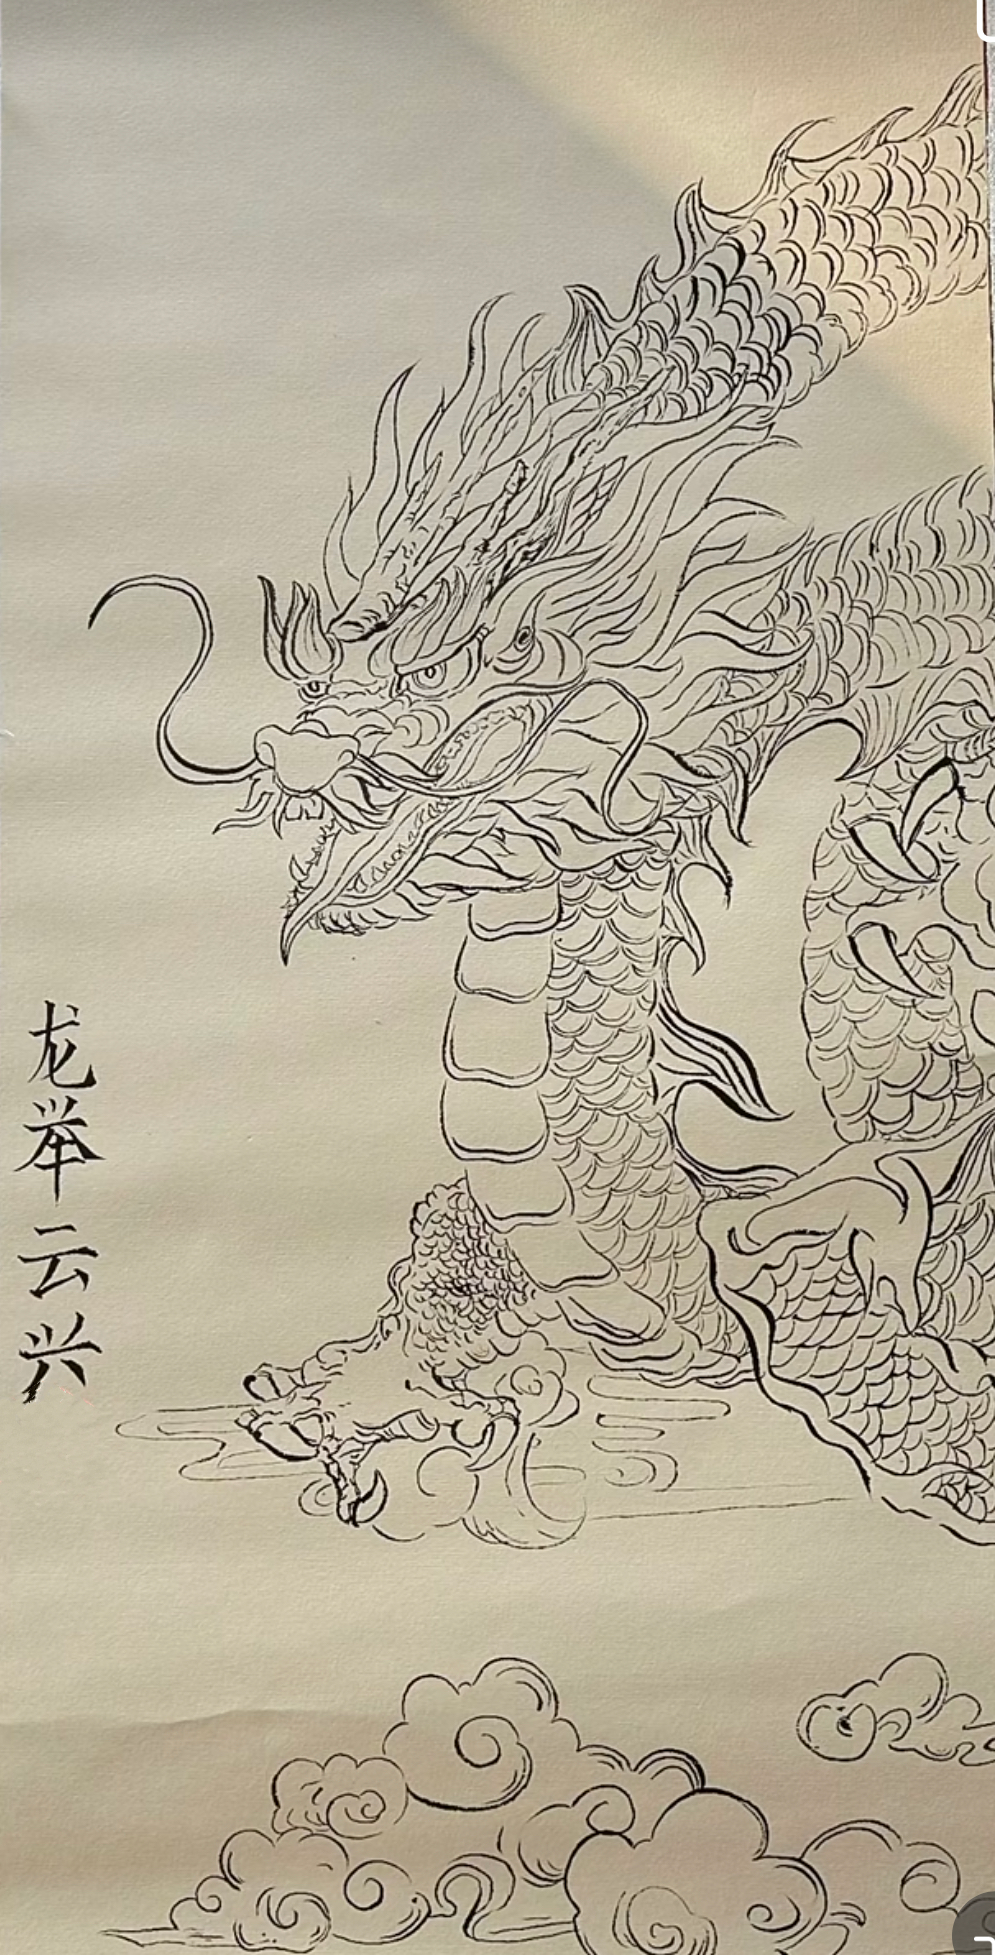 龙举云兴